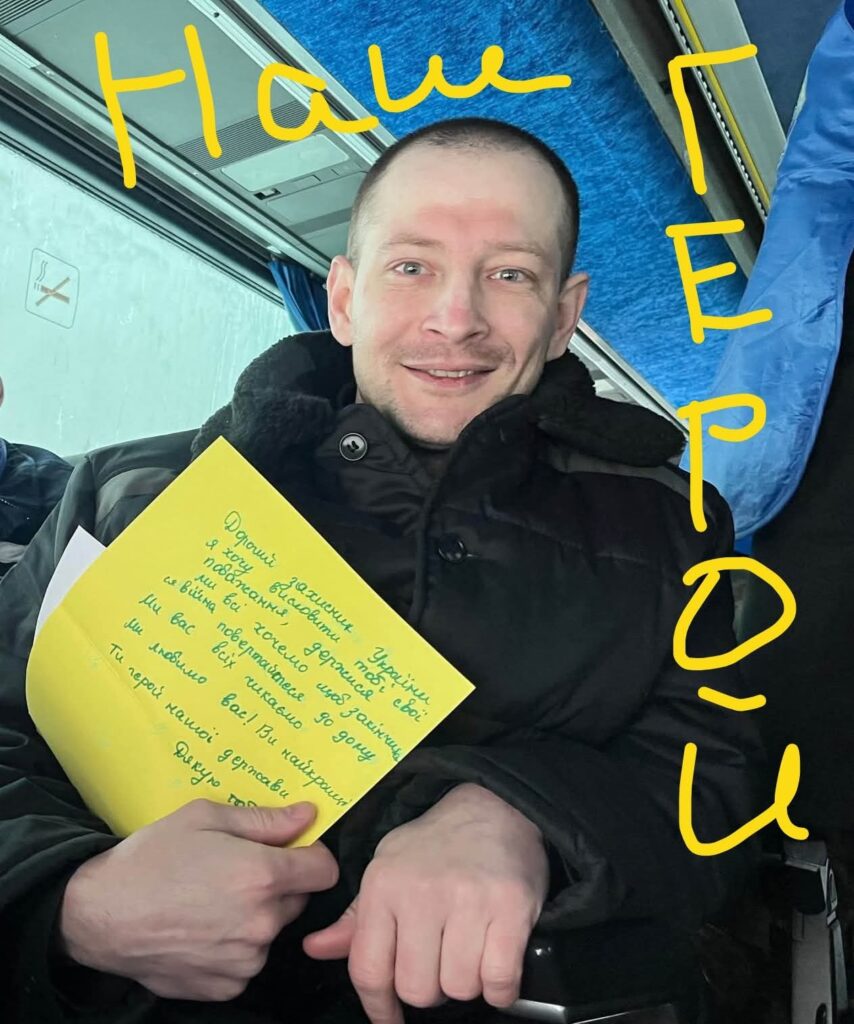 Наш
ГЕРОЙ
Дорогий захисник України
я хочу висловити тобі свої
поважання, держися
ми всі хочемо щоб закінчила
ся війна повертайтеся до дому
Ми вас всіх чикаємо
ми любимо вас! Ви найкращі
Ти герой нашої держави
Дякую